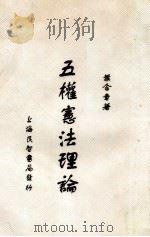 含章著
五權憲法理論
上海民智書局發行